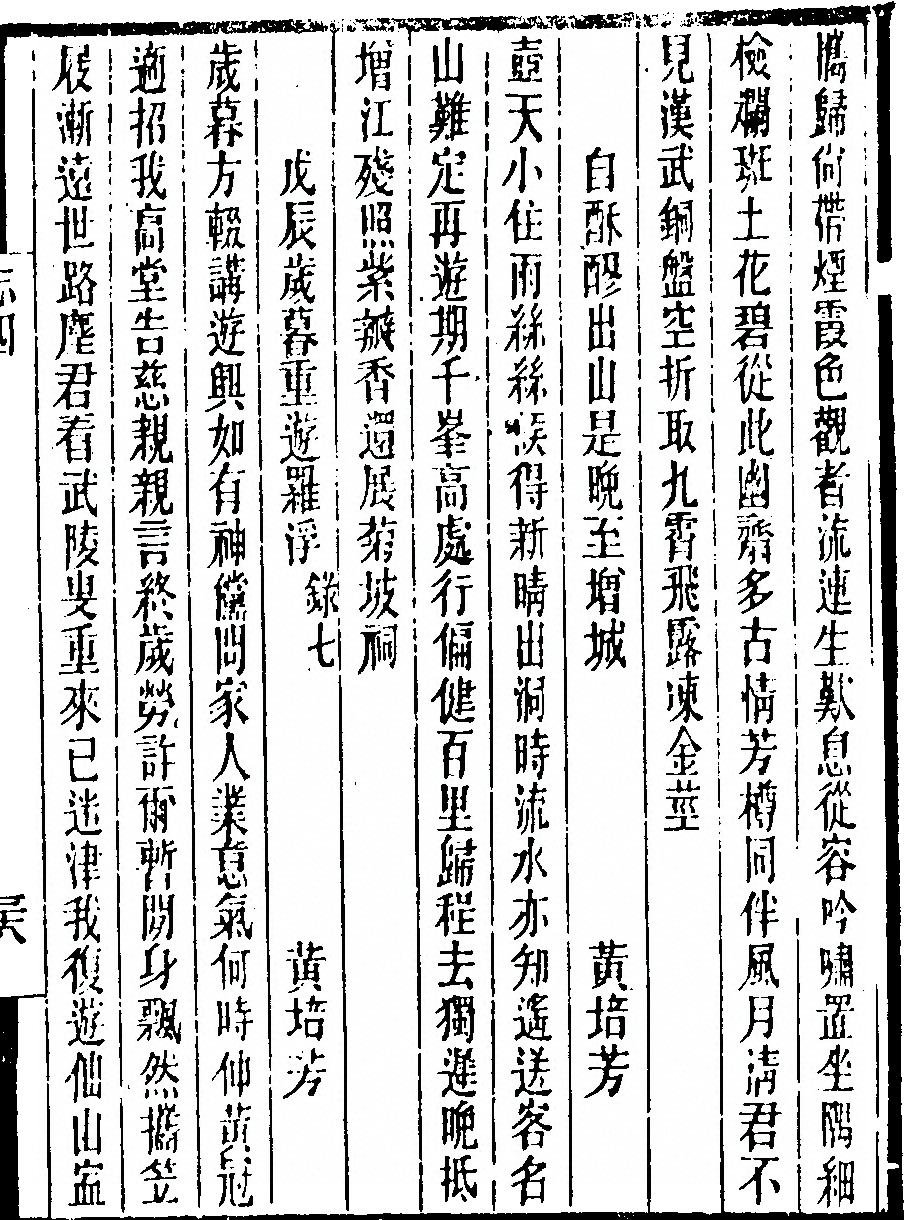 攜歸尙帶煙霞色觀者流連生歎息從容吟嘯置坐隅細
檢斕斑土花碧從此幽齋多古情芳樽同伴風月清君不
見漢武銅盤空折取九霄飛露凍金莖
自酥醪出山是晚至增城 黃培芳
壺天小住雨絲絲 得新晴出洞時流水亦知遙送客名
山難定再遊期千峯高處行偏健百里歸程去獨遲晚抵
增江殘照紫瓣香還展菊坡祠
戊辰歲暮重遊羅浮 錄七 黃培芳
歲暮方輟講遊興如有神儻問家人業意氣何時伸黃冠
適招我高堂告慈親親言終歲勞許爾暫閒身飄然攜笠
屐漸遠世路塵君看武陵叟重來已迷津我復遊仙山寍
志四